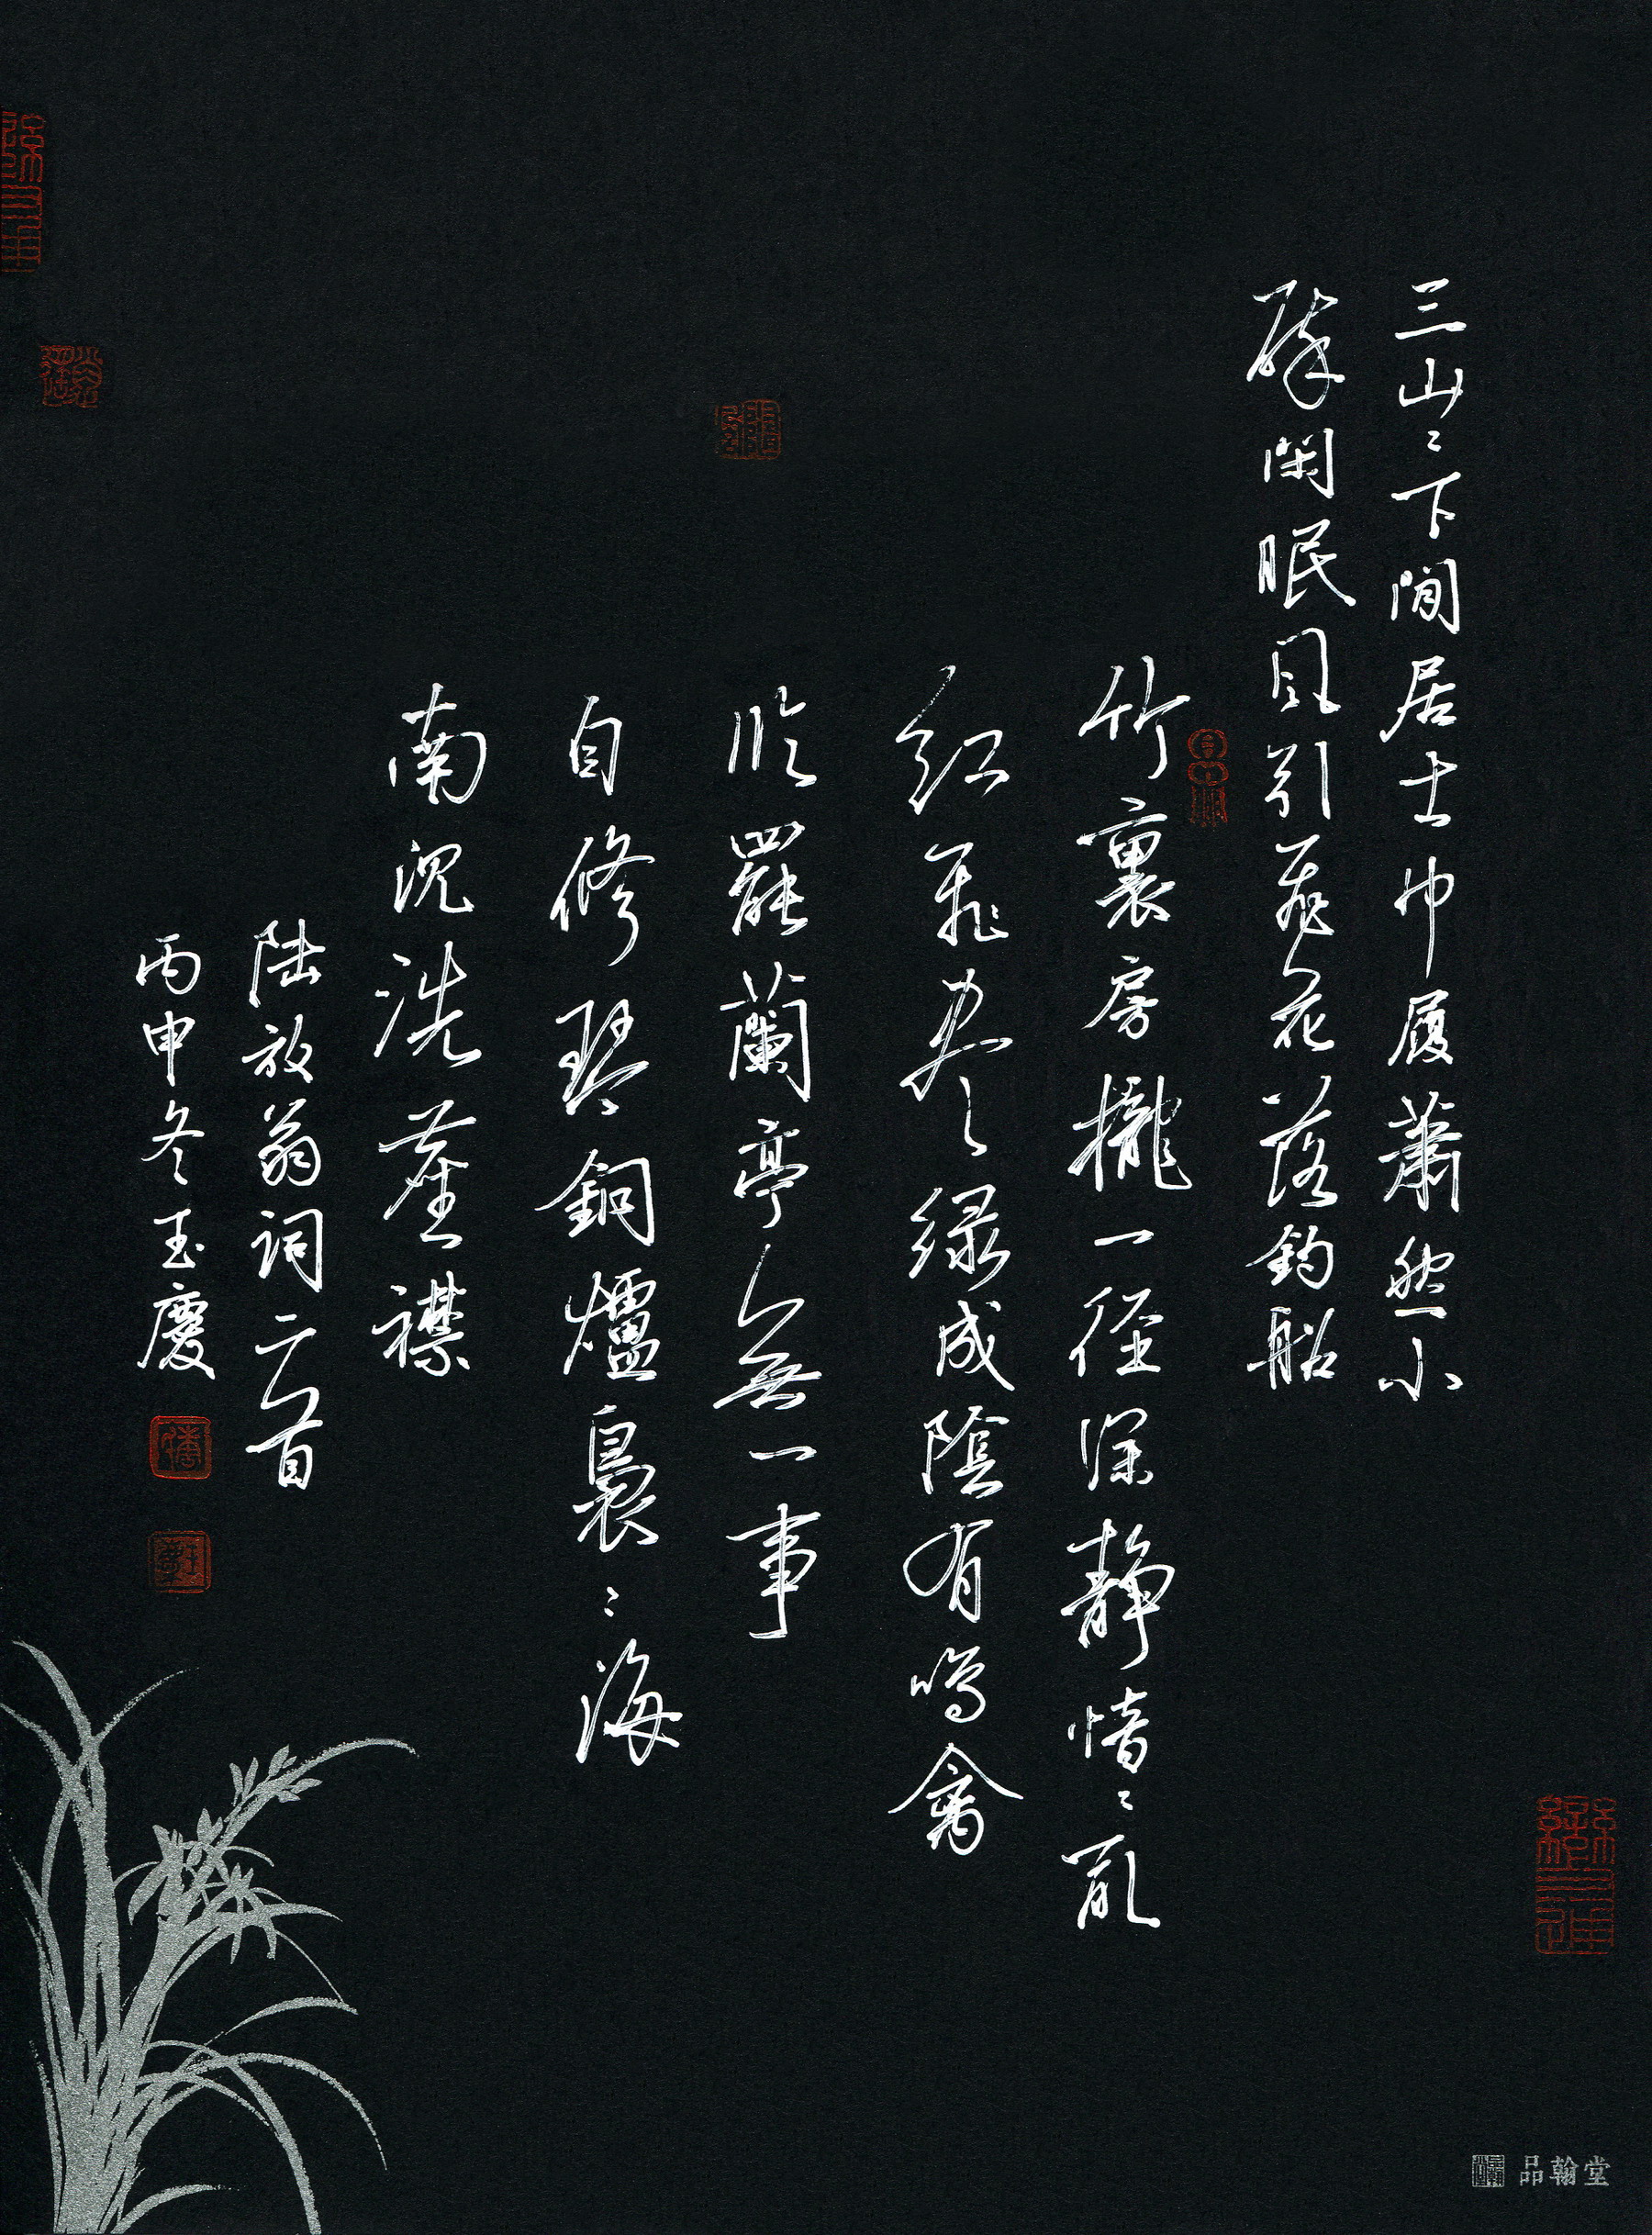 三山〻下閒居士巾履蕭然小
醉閑眠風引飛花落釣船
竹裏房櫳一徑深靜愔〻亂
紅飛盡綠成陰有鳴禽
臨罷蘭亭無一事
自修琴銅爐裊〻海
南沉洗塵襟
陸放翁詞二首
丙申冬玉慶
品翰堂